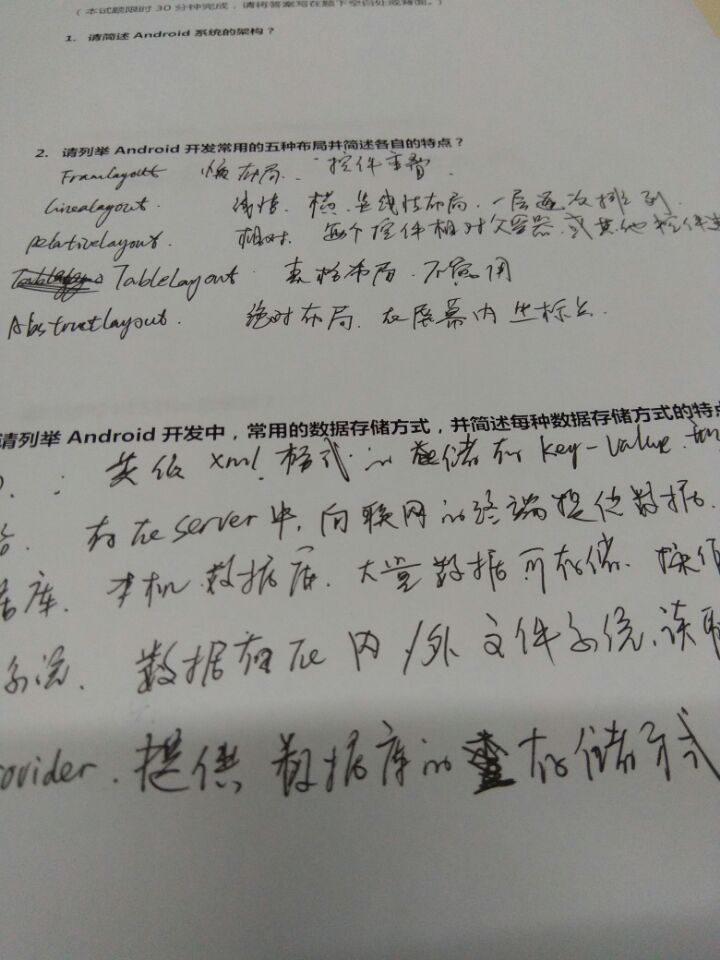 （本试题限时 30 分钟完成，请将答案写在题下空白处或背面。）
1. 请简述 Android 系统的架构？
2. 请列举 Android 开发常用的五种布局并简述各自的特点？
Framlayout 布局. 控件重叠.
Linealayout. 线性. 横.竖线性布局. 一层逐次排列
Relativelayout. 相对. 每个控件相对父容器.或其他控件
TableLayout. 表格布局. 不常用
Abstructlayout. 绝对布局. 在屏幕内坐标点.
请列举 Android 开发中，常用的数据存储方式，并简述每种数据存储方式的特点
xml 格式的存储有 key-value
存在 server 中, 向联网的终端提供数据.
据库. 本机数据库. 大量数据可存储. 操作
系统. 数据存在 内/外文件系统.读取
ovider. 提供数据库的存储方式